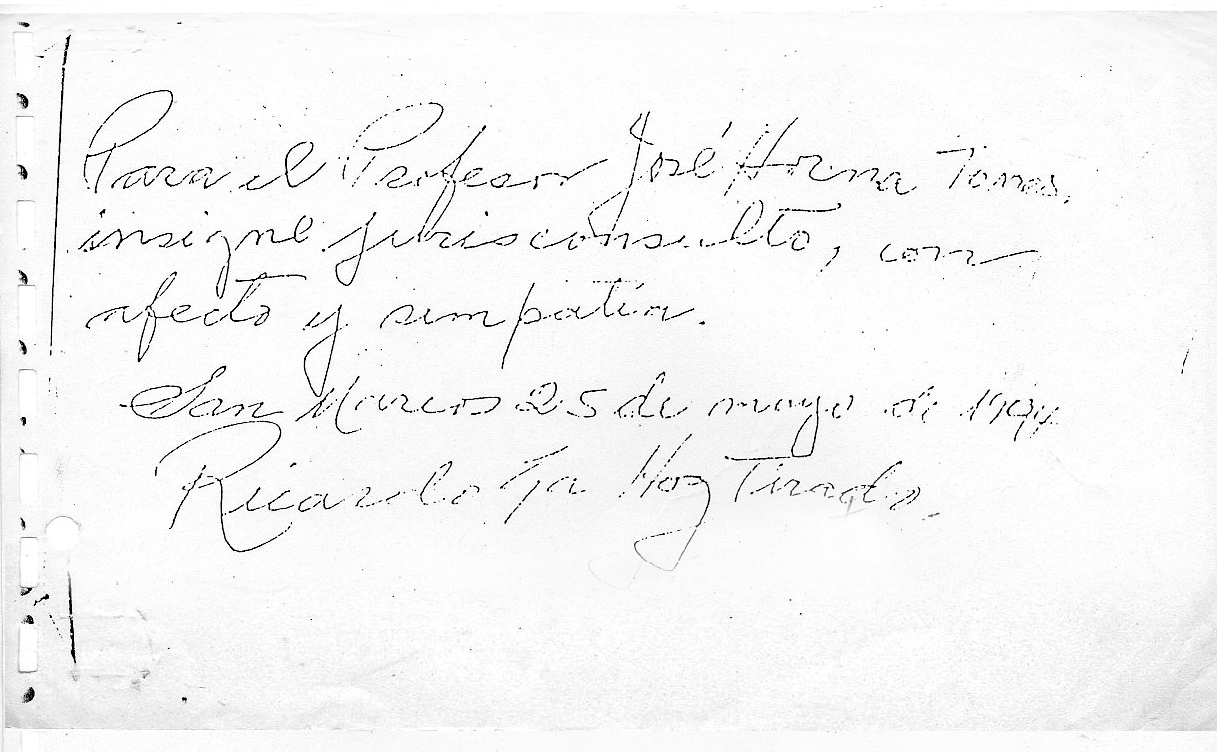 Para el Profesor José Horna Torres,
insigne jurisconsulto, con
afecto y simpatía.
San Marcos 25 de mayo de
Ricardo La Hoz Tirado.